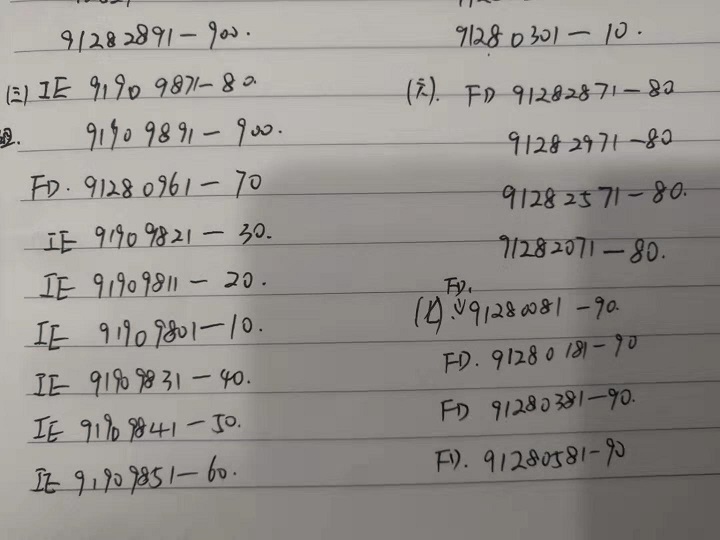 91282891-900.
(三) IE 91909871-80
91909891-900.
FD. 91280961-70
IE 91909821-30.
IE 91909811-20.
IE 91909801-10.
IE 91909831-40.
IE 91909841-50.
IE 91909851-60.
91280301-10.
(六). FD 91282871-80
91282971-80
91282571-80.
91282071-80.
FD.
(七). 91280081-90.
FD. 91280181-90
FD 91280381-90.
FD. 91280581-90